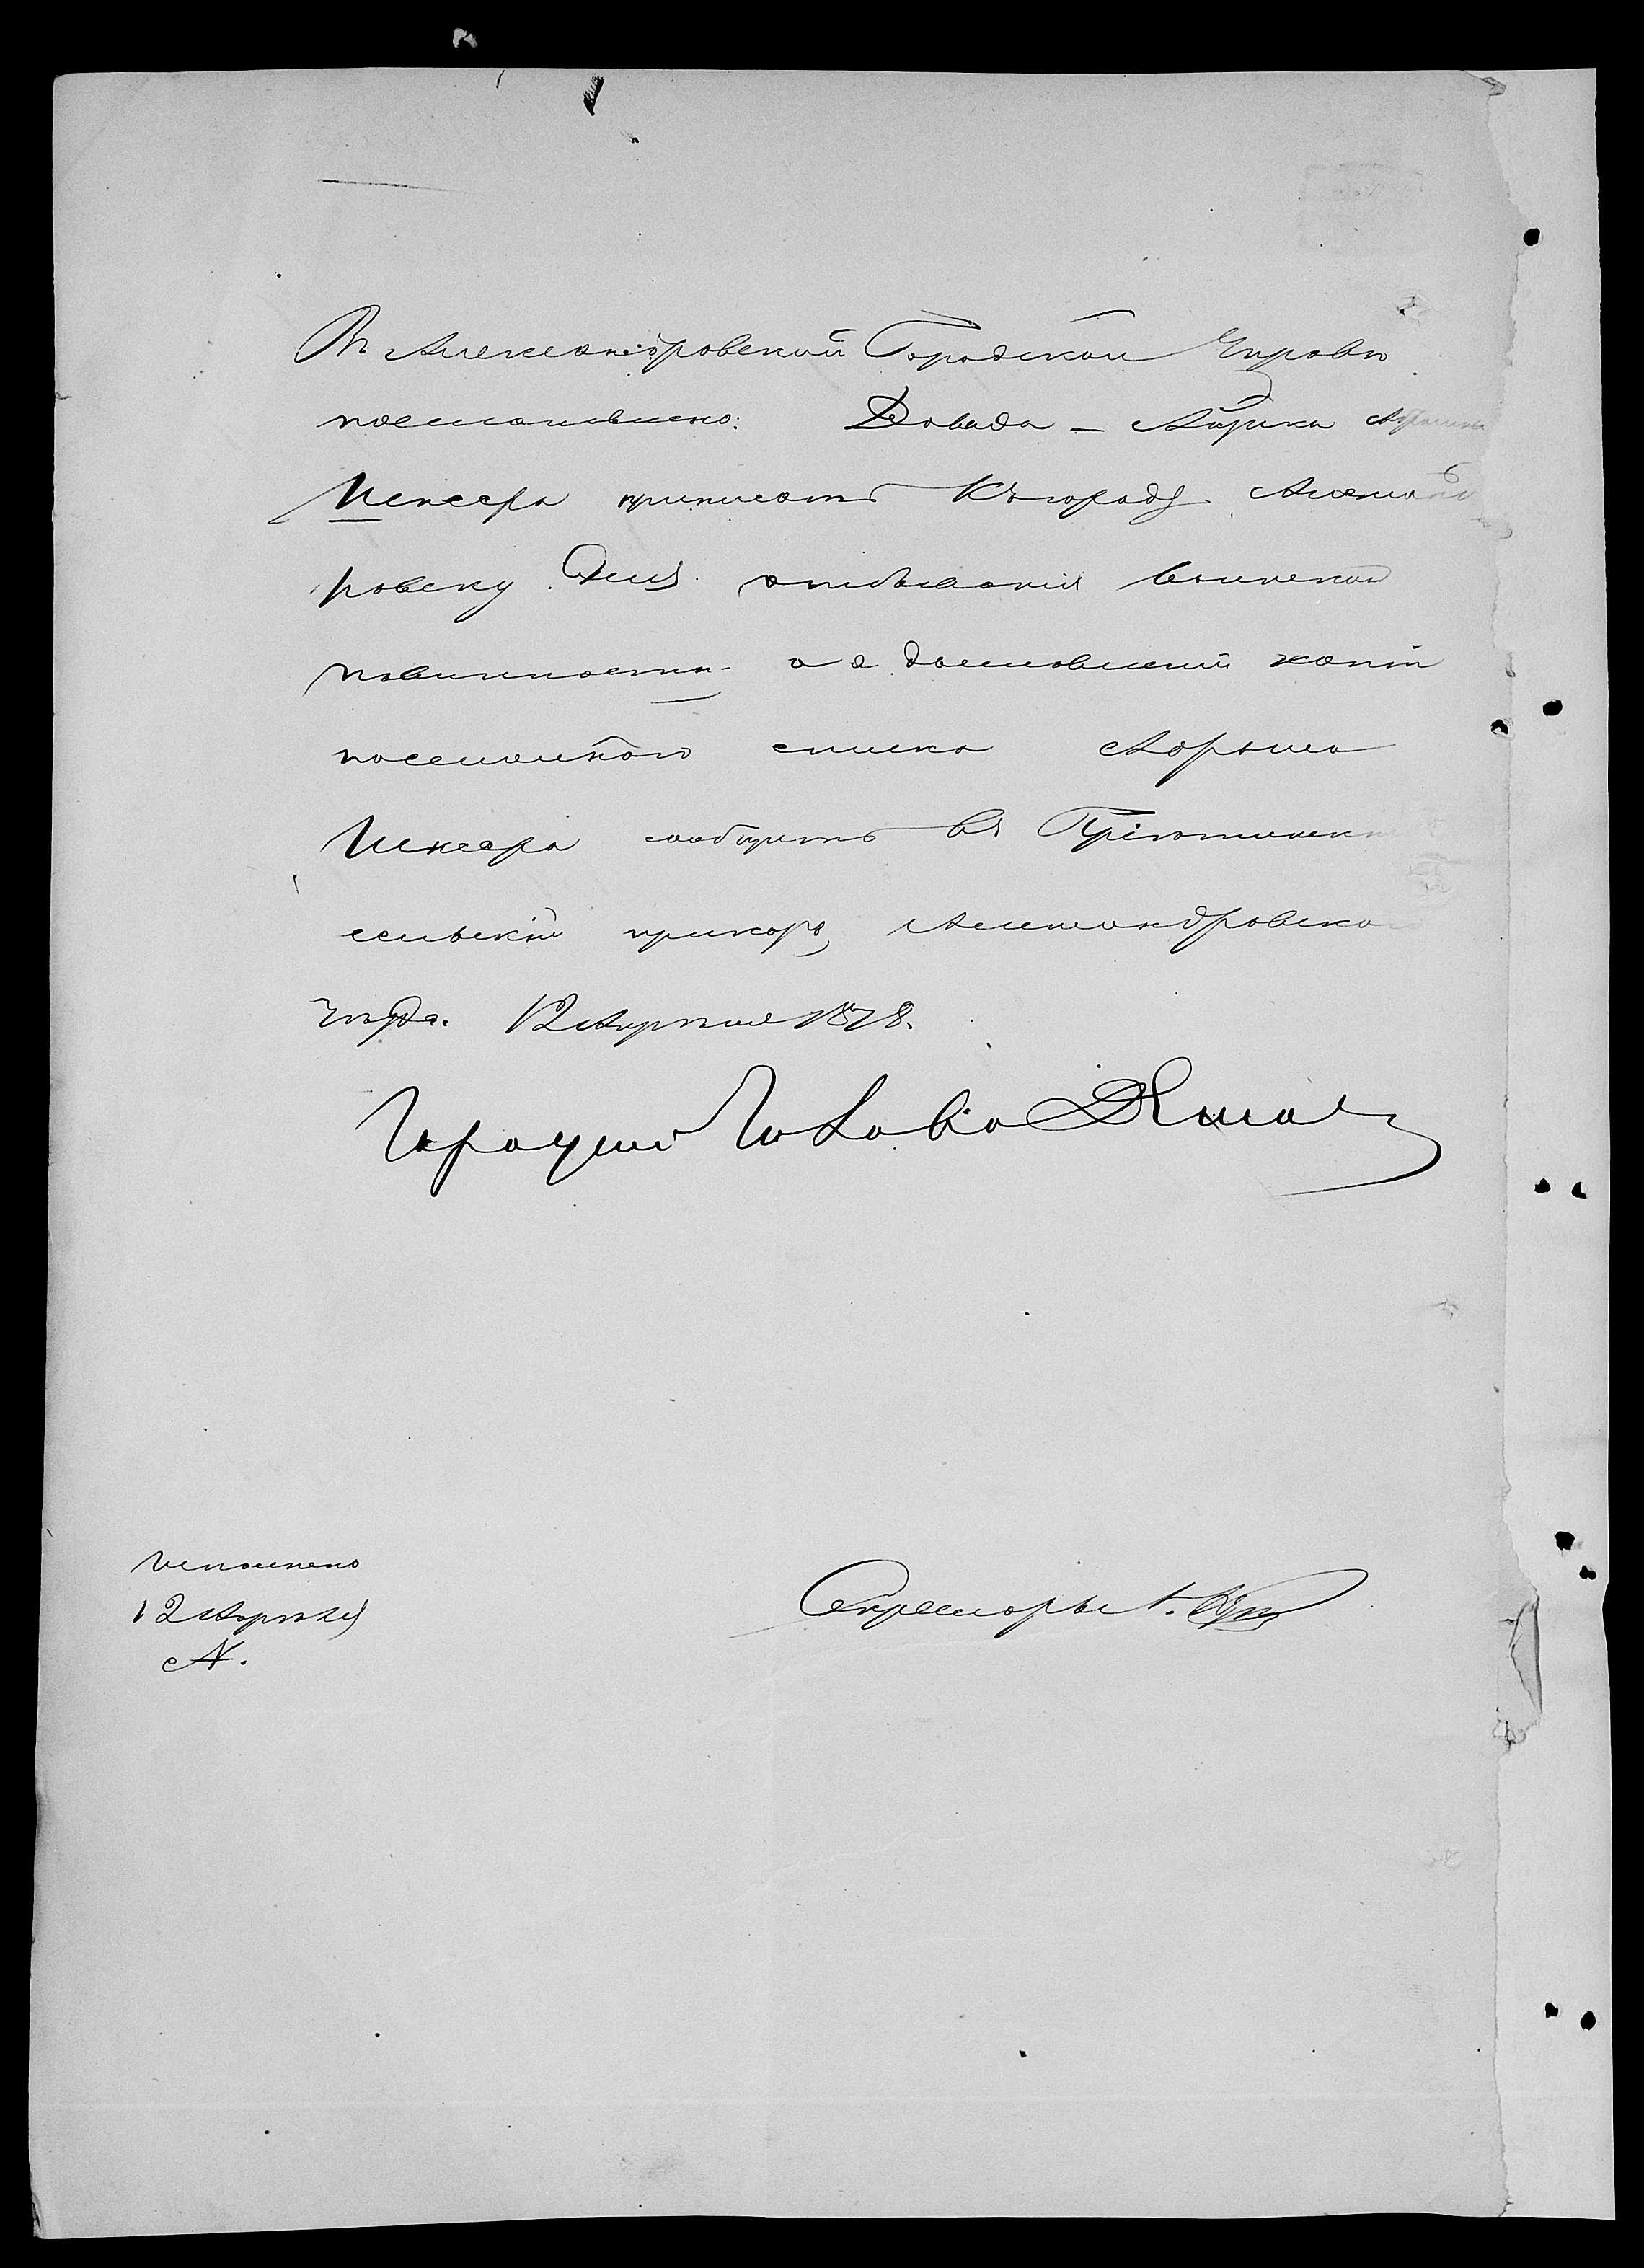 Въ Александровской Городской Управѣ
постановлено: Давида - Айзика Абрама
Инкера приписать къ городу Александ
ровску для отбыванія воинской
повинности а о доставленіи копіи
посемейного списка Абрама
Инкера сообщить въ Пріютинск
сельскій приказъ Александровска
уѣзда. 12 Апрѣля 1878.
Городской Голова
Исполнено
12 Апрѣля
Секретарь